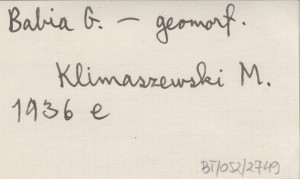 Babia G. – geomorf.
Klimaszewski M.
1936 e
BT/052/2749